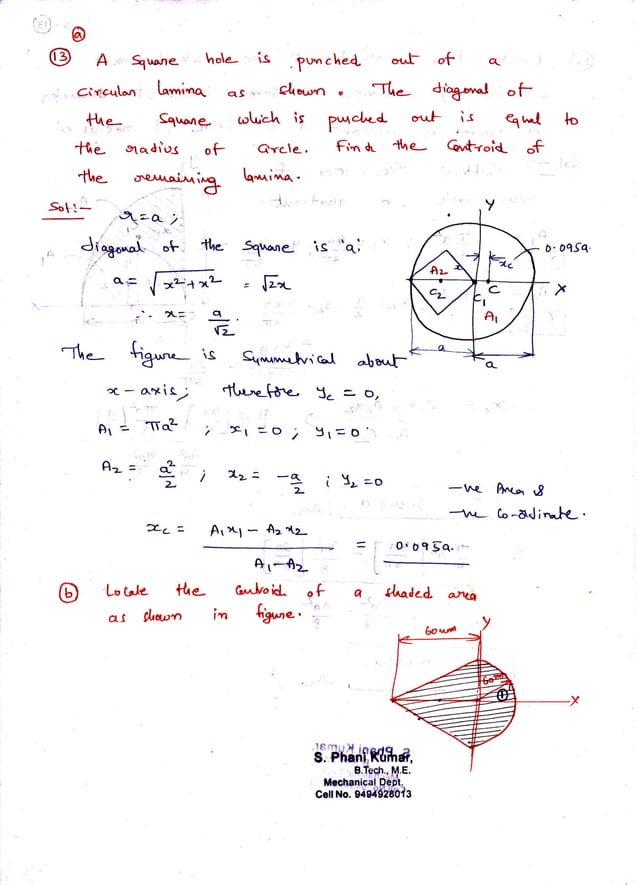 (a)
(13) A Square hole is punched out of a
circular lamina as shown. The diagonal of
the Square which is punched out is equal to
the radius of Circle. Find the Centroid of
the remaining lamina.
Sol:-
r=a ;
diagonal of the square is 'a'
a = √x²+x² = √2x
∴ x = a/√2.
Y
0.095a
A2
x
xc
C2
C1
C
X
A1
a
a
The figure is Symmetrical about
x-axis; therefore yc = 0,
A1 = πa² ; x1 = 0 ; y1 = 0
A2 = a²/2 ; x2 = -a/2 ; y2 = 0
-ve Area &
-ve Co-ordinate.
xc = A1x1 - A2x2 / A1-A2 = 0.095a.
(b) Locate the Centroid of a shaded area
as shown in figure.
Y
60mm
60mm
(1)
X
S. Phani Kumar,
B.Tech., M.E.
Mechanical Dept.
Cell No. 9494928013